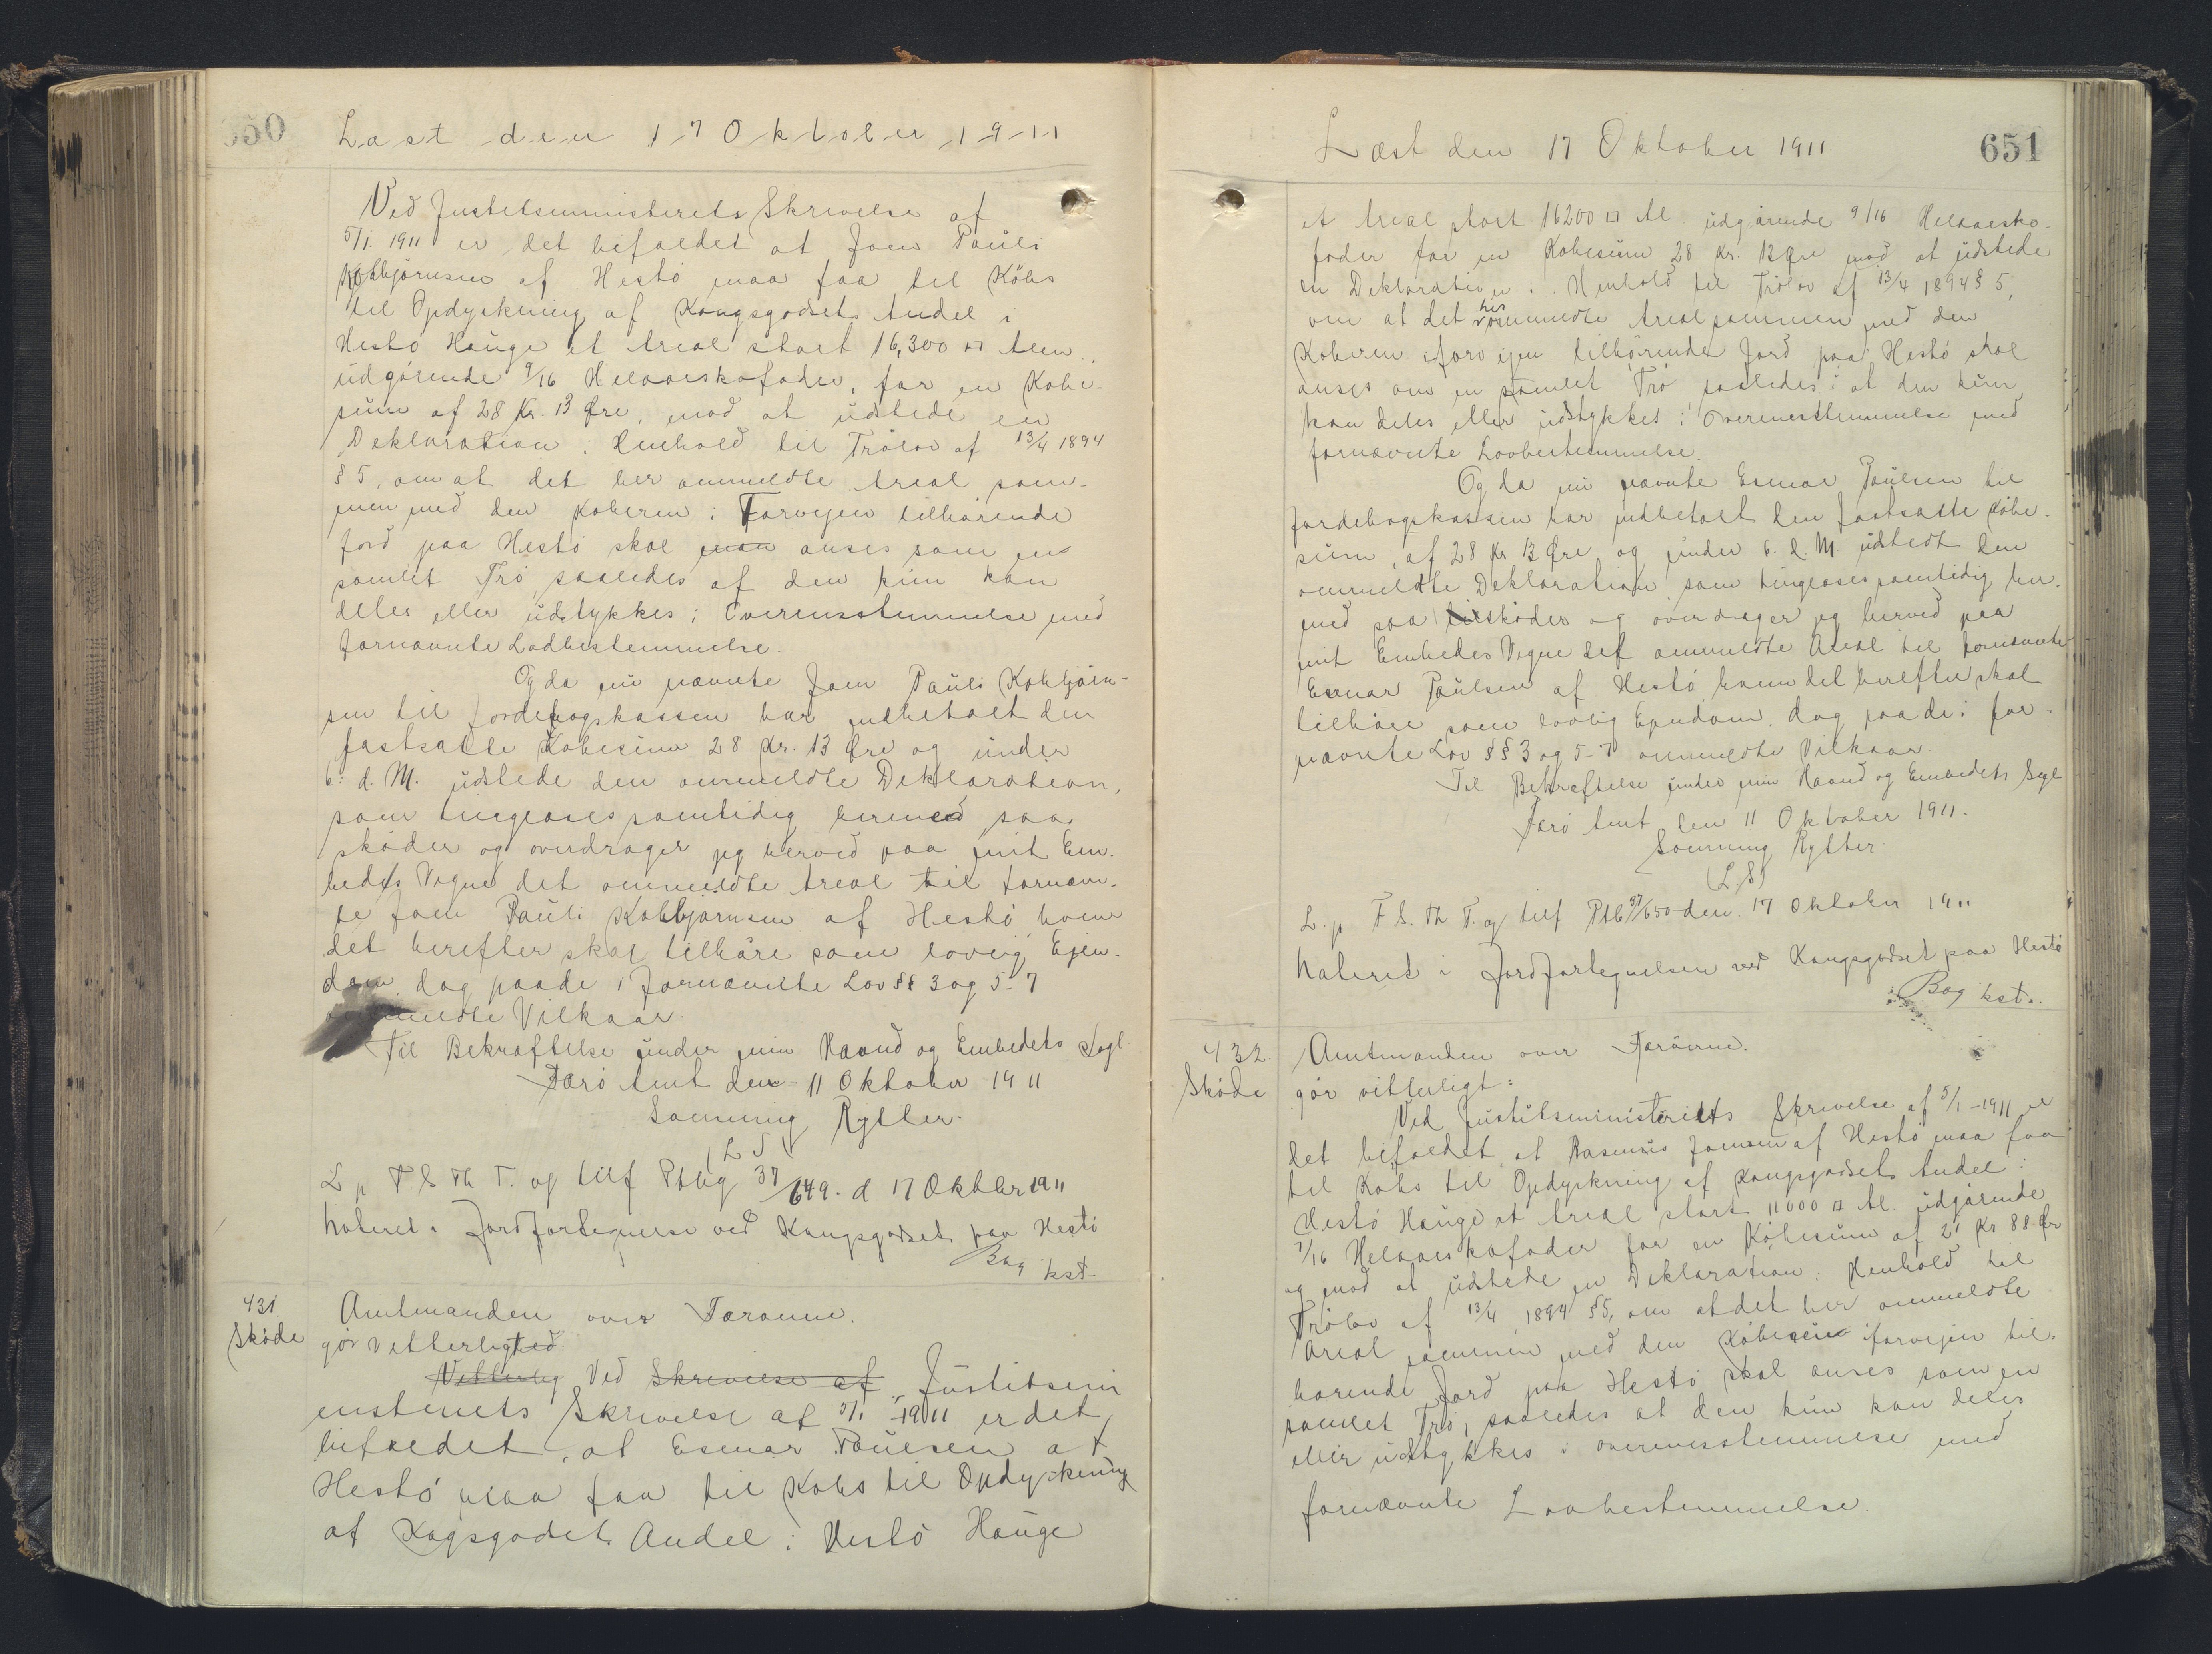 650
Læst den 17 Oktober 1911
Ved Justitsministerets Skrivelse af
5/1 1911 er det bifaldet at Joen Pauli
Kolbjörnsen af Hestö maa faa til Köbs
til Opdyrkning af Kongsgodsets Andel i
Hestö Hauge et Areal stort 16,300 □ Alen
udgörende 9/16 Helaarskofoder, for en Købe-
sum af 28 Kr. 13 Øre, mod at udstede en
Deklaration i Henhold til Trölov af 13/4 1894
§ 5, om at det her ommeldte Areal sam-
men med den Köberen i Forvejen tilhörende
Jord paa Hestö skal man anses som en
samlet Trö, saaledes at den kun kan
deles eller udstykkes i Overensstemmelse med
fornævnte Lovbestemmelse.
Og da nu nævnte Joen Pauli Kolbjörn-
sen til Jordebogskassen har indbetalt den
fastsatte Köbesum 28 Kr. 13 Øre og under
6. d. M. udstede den ommeldte Deklaration,
som tinglæses samtidig hermed saa
sköder og overdrager jeg herved paa mit Em-
bedes Vegne det ommeldte Areal til fornævn-
te Joen Pauli Kolbjørnsen af Hestö, hvem
det herefter skal tilhöre som lovlig Ejen-
dom, dog paa de i fornævnte Lov §§ 3 og 5-7
ommeldte Vilkaar.
Til Bekræftelse under min Haand og Embedets Segl
Færö Amt den 11 Oktober 1911
Svenning Rytter.
(L S)
L p F S Th T. og tilf Ptbg 37/649. d 17 Oktbr 1911
Noteret i Jordfortegnelse ved Kongsgodset paa Hestö
Bag kst.
431
Sköde
Amtmanden over Færøerne.
gör Vetterlighed.
Vetterlig Ved Skrivelse af Justitsmi
ensterets Skrivelse af 5/1 -1911 er det
bifaldet, at Esmar Poulsen af
Hestö maa faa til Købs til Opdyrkning
af Kogsgodets Andel i Hestö Hauge
Læst den 17 Oktober 1911
651
et Areal stort 16200 □ Al udgörende 9/16 Helaarsko-
foder for en Købesum 28 Kr. 13 Øre mod at udstede
en Deklaration i Henhold til Trölov af 13/4 1894 § 5,
om at det her ommeldte Areal sammen med den
Køberen i forvejen tilhörende Jord paa Hestö skal
anses om en samlet Trö saaledes i at den kun
kan deles eller udstykkes i Overensstemmelse med
fornævnte Lovbestemmelse.
Og da nu nævnte Esmar Paulsen til
Jordebogskassen har indbetalt den fastsatte Købe-
sum, af 28 Kr. 13 Øre og under 6. d. M. udstedt den
ommeldte Deklaration som tinglæses samtidig her-
med saa tilsköder og overdrager jeg herved paa
mit Embedes Vegne det ommeldte Areal til fornævnte
Esmar Paulsen af Hestö hvem det herefter skal
tilhöre som lovlig Ejendom, dog paa de i for-
nævnte Lov §§ 3 og 5-7 ommeldte Vilkaar.
Til Bekræftelse under min Haand og Embedets Segl
Færö Amt den 11 Oktober 1911.
Svenning Rytter
(L.S)
L. p F S. Th T. og tilf Ptb 37/650 den 17 Oktober 1911
Noteret i Jordfortegnelsen ved Kongsgodset paa Hestö
Bag kst.
432.
Sköde
Amtmanden over Færöerne.
gör vitterligt:
Ved Justitsministeriets Skrivelse af 5/1 -1911 er
det bifaldet, at Rasmus Joensen af Hestö maa faa
til Købs til Opdyrkning af Kongsgodsets Andel i
Hestö Hauge et Areal stort 11000 □ Al. udgörende
7/16 Helaarskofoder for en Købesum af 21 Kr 88 Ør
og mod at udstede en Deklaration i Henhold til
Trölov af 13/4 1894 § 5, om at det her ommeldte
Areal sammen med den Köberen i forvejen til-
hørende Jord paa Hestö skal anses som en
samlet Trö, saaledes at den kun kan deles
eller udstykkes i overensstemmelse med
fornævnte Lovbestemmelse.